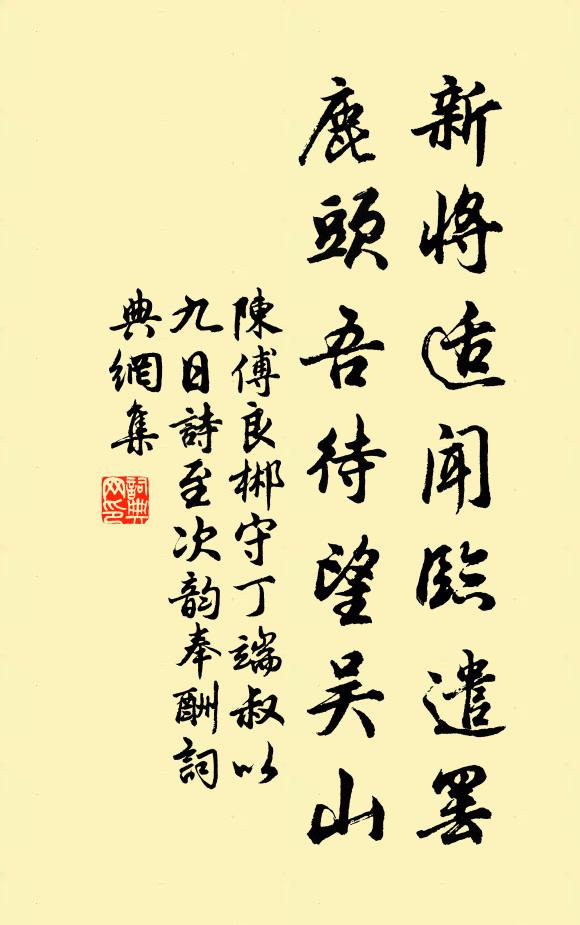 新將适闻臨遣罢
鹿頭吾待望吴山
陳傅良郴守丁端叔以
九日詩至次韵奉酬詞
典網集
詞典网印